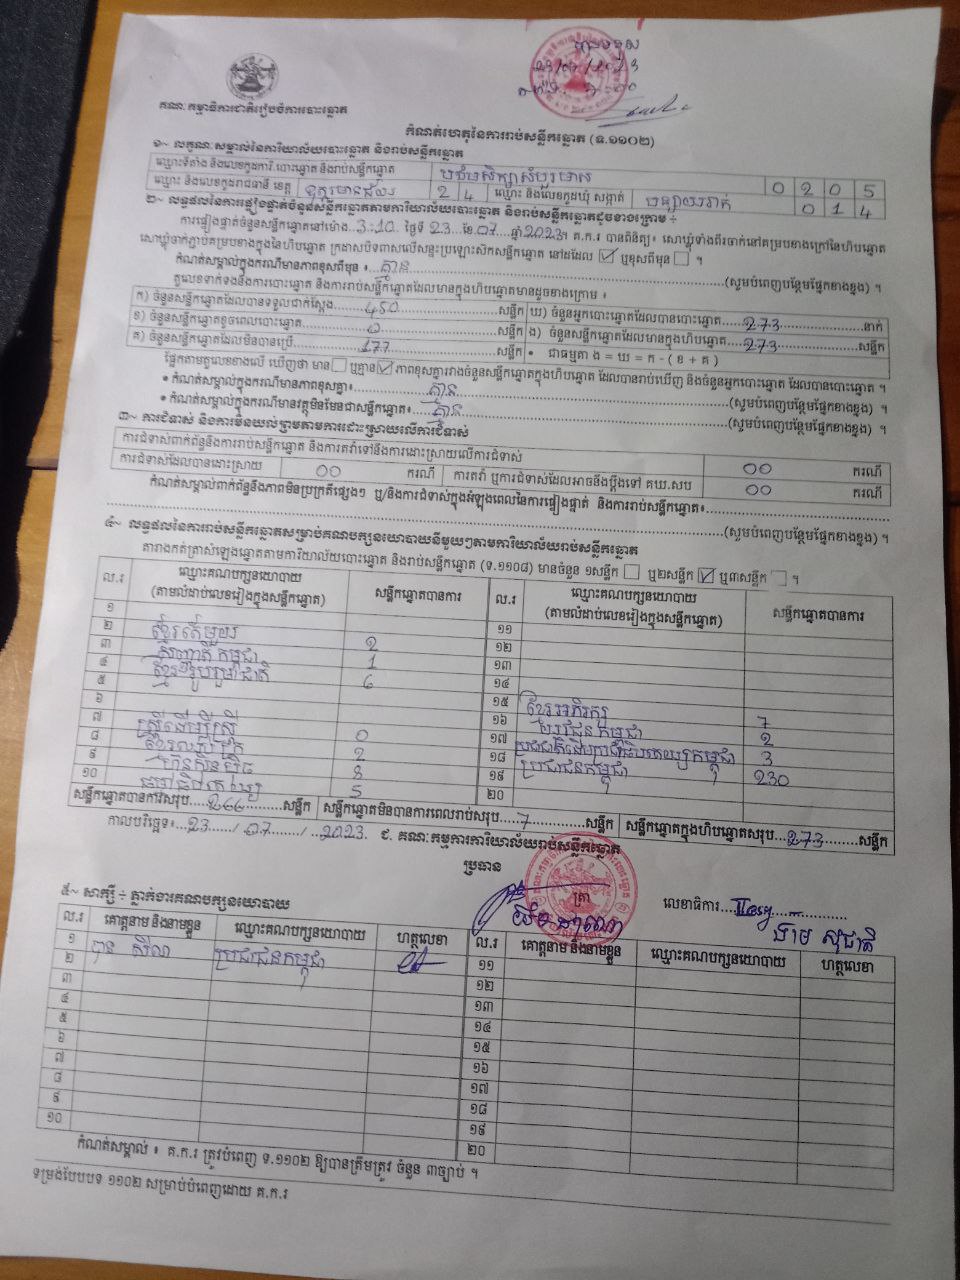 គណៈកម្មាធិការជាតិរៀបចំការបោះឆ្នោត
23/07/2023
កំណត់ហេតុនៃការរាប់សន្លឹកឆ្នោត (ទ.១១០២)
១~ លក្ខណៈសម្គាល់នៃការិយាល័យបោះឆ្នោត និងរាប់សន្លឹកឆ្នោត
ឈ្មោះទីតាំង និងលេខកូដការិ.បោះឆ្នោត និងរាប់សន្លឹកឆ្នោត 0 2 0 5
ឈ្មោះ និងលេខកូដរាជធានី ខេត្ត 2 4 ឈ្មោះ និងលេខកូដឃុំ សង្កាត់ 0 1 4
២~ លទ្ធផលនៃការផ្ទៀងផ្ទាត់ចំនួនសន្លឹកឆ្នោតតាមការិយាល័យបោះឆ្នោត និងរាប់សន្លឹកឆ្នោតដូចខាងក្រោម ÷
ការផ្ទៀងផ្ទាត់ចំនួនសន្លឹកឆ្នោតនៅម៉ោង..3:10.. ថ្ងៃទី 23 ..ខែ.07.... ឆ្នាំ 2023។ គ.ក.រ បានពិនិត្យ៖ សោឃ្លុំទាំងពីរចាក់នៅគម្របខាងក្រៅនៃហិបឆ្នោត
សោឃ្លុំចាក់ភ្ជាប់គម្របខាងក្នុងនៃហិបឆ្នោត ក្រដាសបិទពាសលើសន្ទះប្រឡោះសិកសន្លឹកឆ្នោត នៅដដែល ☑ ឬខុសពីមុន ☐ ។
កំណត់សម្គាល់ក្នុងករណីមានភាពខុសពីមុន ៖...គ្មាន...(សូមបំពេញបន្ថែមផ្នែកខាងខ្នង) ។
តួលេខទាក់ទងនឹងការបោះឆ្នោត និងការរាប់សន្លឹកឆ្នោតដែលមានក្នុងហិបឆ្នោតមានដូចខាងក្រោម ៖
ក) ចំនួនសន្លឹកឆ្នោតដែលបានទទួលជាក់ស្តែង...450...សន្លឹក ឃ) ចំនួនអ្នកបោះឆ្នោតដែលបានបោះឆ្នោត...273...នាក់
ខ) ចំនួនសន្លឹកឆ្នោតខូចពេលបោះឆ្នោត...0...សន្លឹក ង) ចំនួនសន្លឹកឆ្នោតដែលមានក្នុងហិបឆ្នោត...273...សន្លឹក
គ) ចំនួនសន្លឹកឆ្នោតដែលមិនបានប្រើ...177...សន្លឹក • ជាធម្មតា ង = ឃ = ក - ( ខ + គ )
ផ្អែកតាមតួលេខខាងលើ ឃើញថា មាន ☐ ឬគ្មាន ☑ ភាពខុសគ្នារវាងចំនួនសន្លឹកឆ្នោតក្នុងហិបឆ្នោត ដែលបានរាប់ឃើញ និងចំនួនអ្នកបោះឆ្នោត ដែលបានបោះឆ្នោត ។
• កំណត់សម្គាល់ក្នុងករណីមានភាពខុសគ្នា៖...គ្មាន...(សូមបំពេញបន្ថែមផ្នែកខាងខ្នង) ។
• កំណត់សម្គាល់ក្នុងករណីមានវត្ថុមិនមែនជាសន្លឹកឆ្នោត៖...គ្មាន...(សូមបំពេញបន្ថែមផ្នែកខាងខ្នង) ។
៣~ ការជំទាស់ និងការមិនយល់ព្រមតាមការដោះស្រាយលើការជំទាស់
ការជំទាស់ពាក់ព័ន្ធនឹងការរាប់សន្លឹកឆ្នោត និងការតវ៉ាទៅនឹងការដោះស្រាយលើការជំទាស់ 00 ករណី
ការជំទាស់ដែលបានដោះស្រាយ 00 ករណី ការតវ៉ា ឬការជំទាស់ដែលអាចនឹងប្តឹងទៅ គឃ.សប 00 ករណី
កំណត់សម្គាល់ពាក់ព័ន្ធនឹងភាពមិនប្រក្រតីផ្សេងៗ ឬ/និងការជំទាស់ក្នុងអំឡុងពេលនៃការផ្ទៀងផ្ទាត់ និងការរាប់សន្លឹកឆ្នោត៖...
...(សូមបំពេញបន្ថែមផ្នែកខាងខ្នង) ។
៤~ លទ្ធផលនៃការរាប់សន្លឹកឆ្នោតសម្រាប់គណបក្សនយោបាយនីមួយៗតាមការិយាល័យរាប់សន្លឹកឆ្នោត
តារាងកត់ត្រាសំឡេងឆ្នោតតាមការិយាល័យបោះឆ្នោត និងរាប់សន្លឹកឆ្នោត (ទ.១១០៨) មានចំនួន ១សន្លឹក ☐ ឬ២សន្លឹក ☑ ឬ៣សន្លឹក ☐ ។
ល.រ ឈ្មោះគណបក្សនយោបាយ (តាមលំដាប់លេខរៀងក្នុងសន្លឹកឆ្នោត) សន្លឹកឆ្នោតបានការ ល.រ ឈ្មោះគណបក្សនយោបាយ (តាមលំដាប់លេខរៀងក្នុងសន្លឹកឆ្នោត) សន្លឹកឆ្នោតបានការ
១ ១១
២ ខ្មែរតែមួយ 2 ១២
៣ សញ្ជាតិកម្ពុជា 1 ១៣
៤ ខ្មែររួបរួមជាតិ 6 ១៤
៥ ១៥ ខ្មែរអភិរក្ស 7
៦ ១៦ 2
៧ ស្ត្រីដើម្បីស្ត្រី 0 ១៧ 3
៨ 2 ១៨ ប្រជាជនកម្ពុជា 230
៩ 8 ១៩
១០ 5 ២០
សន្លឹកឆ្នោតបានការសរុប...266...សន្លឹក សន្លឹកឆ្នោតមិនបានការពេលរាប់សរុប...7...សន្លឹក សន្លឹកឆ្នោតក្នុងហិបឆ្នោតសរុប...273...សន្លឹក
កាលបរិច្ឆេទ៖...23.../...07.../...2023. ជ. គណៈកម្មការការិយាល័យរាប់សន្លឹកឆ្នោត
ប្រធាន
ត្រា លេខាធិការ
៥~ សាក្សី ÷ ភ្នាក់ងារគណបក្សនយោបាយ
ល.រ គោត្តនាម និងនាមខ្លួន ឈ្មោះគណបក្សនយោបាយ ហត្ថលេខា ល.រ គោត្តនាម និងនាមខ្លួន ឈ្មោះគណបក្សនយោបាយ ហត្ថលេខា
១ ប្រជាជនកម្ពុជា ១១
២ ១២
៣ ១៣
៤ ១៤
៥ ១៥
៦ ១៦
៧ ១៧
៨ ១៨
៩ ១៩
១០ ២០
កំណត់សម្គាល់ ៖ គ.ក.រ ត្រូវបំពេញ ទ.១១០២ ឱ្យបានត្រឹមត្រូវ ចំនួន ៣ច្បាប់ ។
ទម្រង់បែបបទ ១១០២ សម្រាប់បំពេញដោយ គ.ក.រ